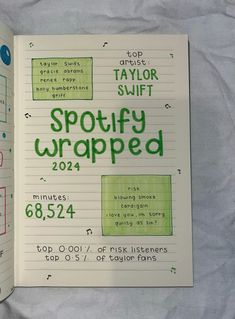 taylor swift
gracie abrams
renee rapp
holly humberstone
griff
top
artist:
TAYLOR
SWIFT
Spotify
wrapped
2024
minutes:
68,524
risk
blowing smoke
cardigan
i love you, im sorry
guilty as sin?
top 0.001% of risk listeners
top 0.5% of taylor fans